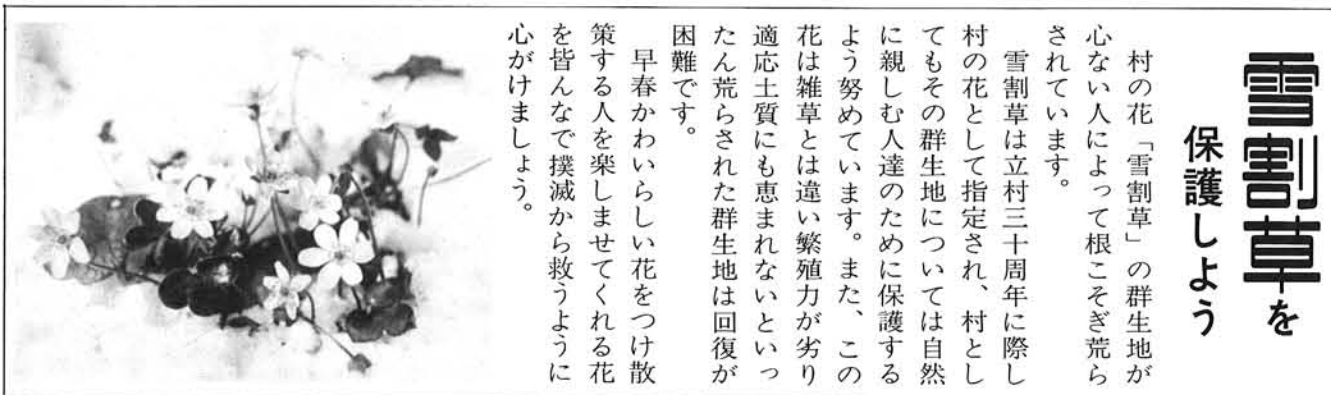 雪割草を
保護しよう
村の花「雪割草」の群生地が
心ない人によって根こそぎ荒ら
されています。
雪割草は立村三十周年に際し
村の花として指定され、村とし
てもその群生地については自然
に親しむ人達のために保護する
よう努めています。また、この
花は雑草とは違い繁殖力が劣り
適応土質にも恵まれないといっ
たん荒らされた群生地は回復が
困難です。
早春かわいらしい花をつけ散
策する人を楽しませてくれる花
を皆んなで撲滅から救うように
心がけましょう。